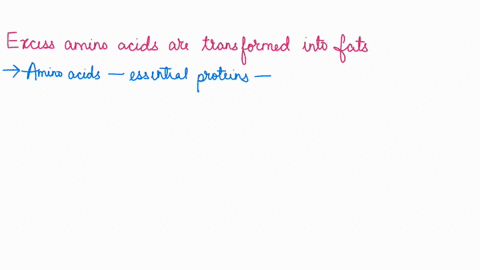 Excess amino acids are transformed into fats
→ Amino acids — essential proteins —